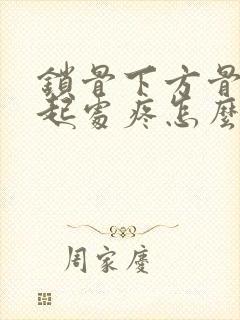 鎖骨下方骨
起處疼怎麼
周家慶